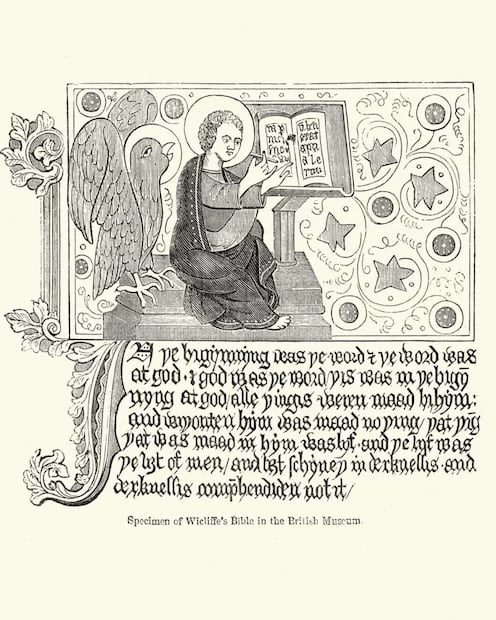 In ye bigynnyng was ye word ⁊ ye word was
at god · ⁊ god was ye word yis was in ye bigyn̄
nyng at god alle yingis weren maad bi hym:
and wiyouten hym was maad no ying, yat ying
yat was maad in hym was lyf · and ye lyf was
ye lyt of men, and lyt schyney in derknessis · and
derknessis comp̄hendiden not it/
Specimen of Wicliffe's Bible in the British Museum.